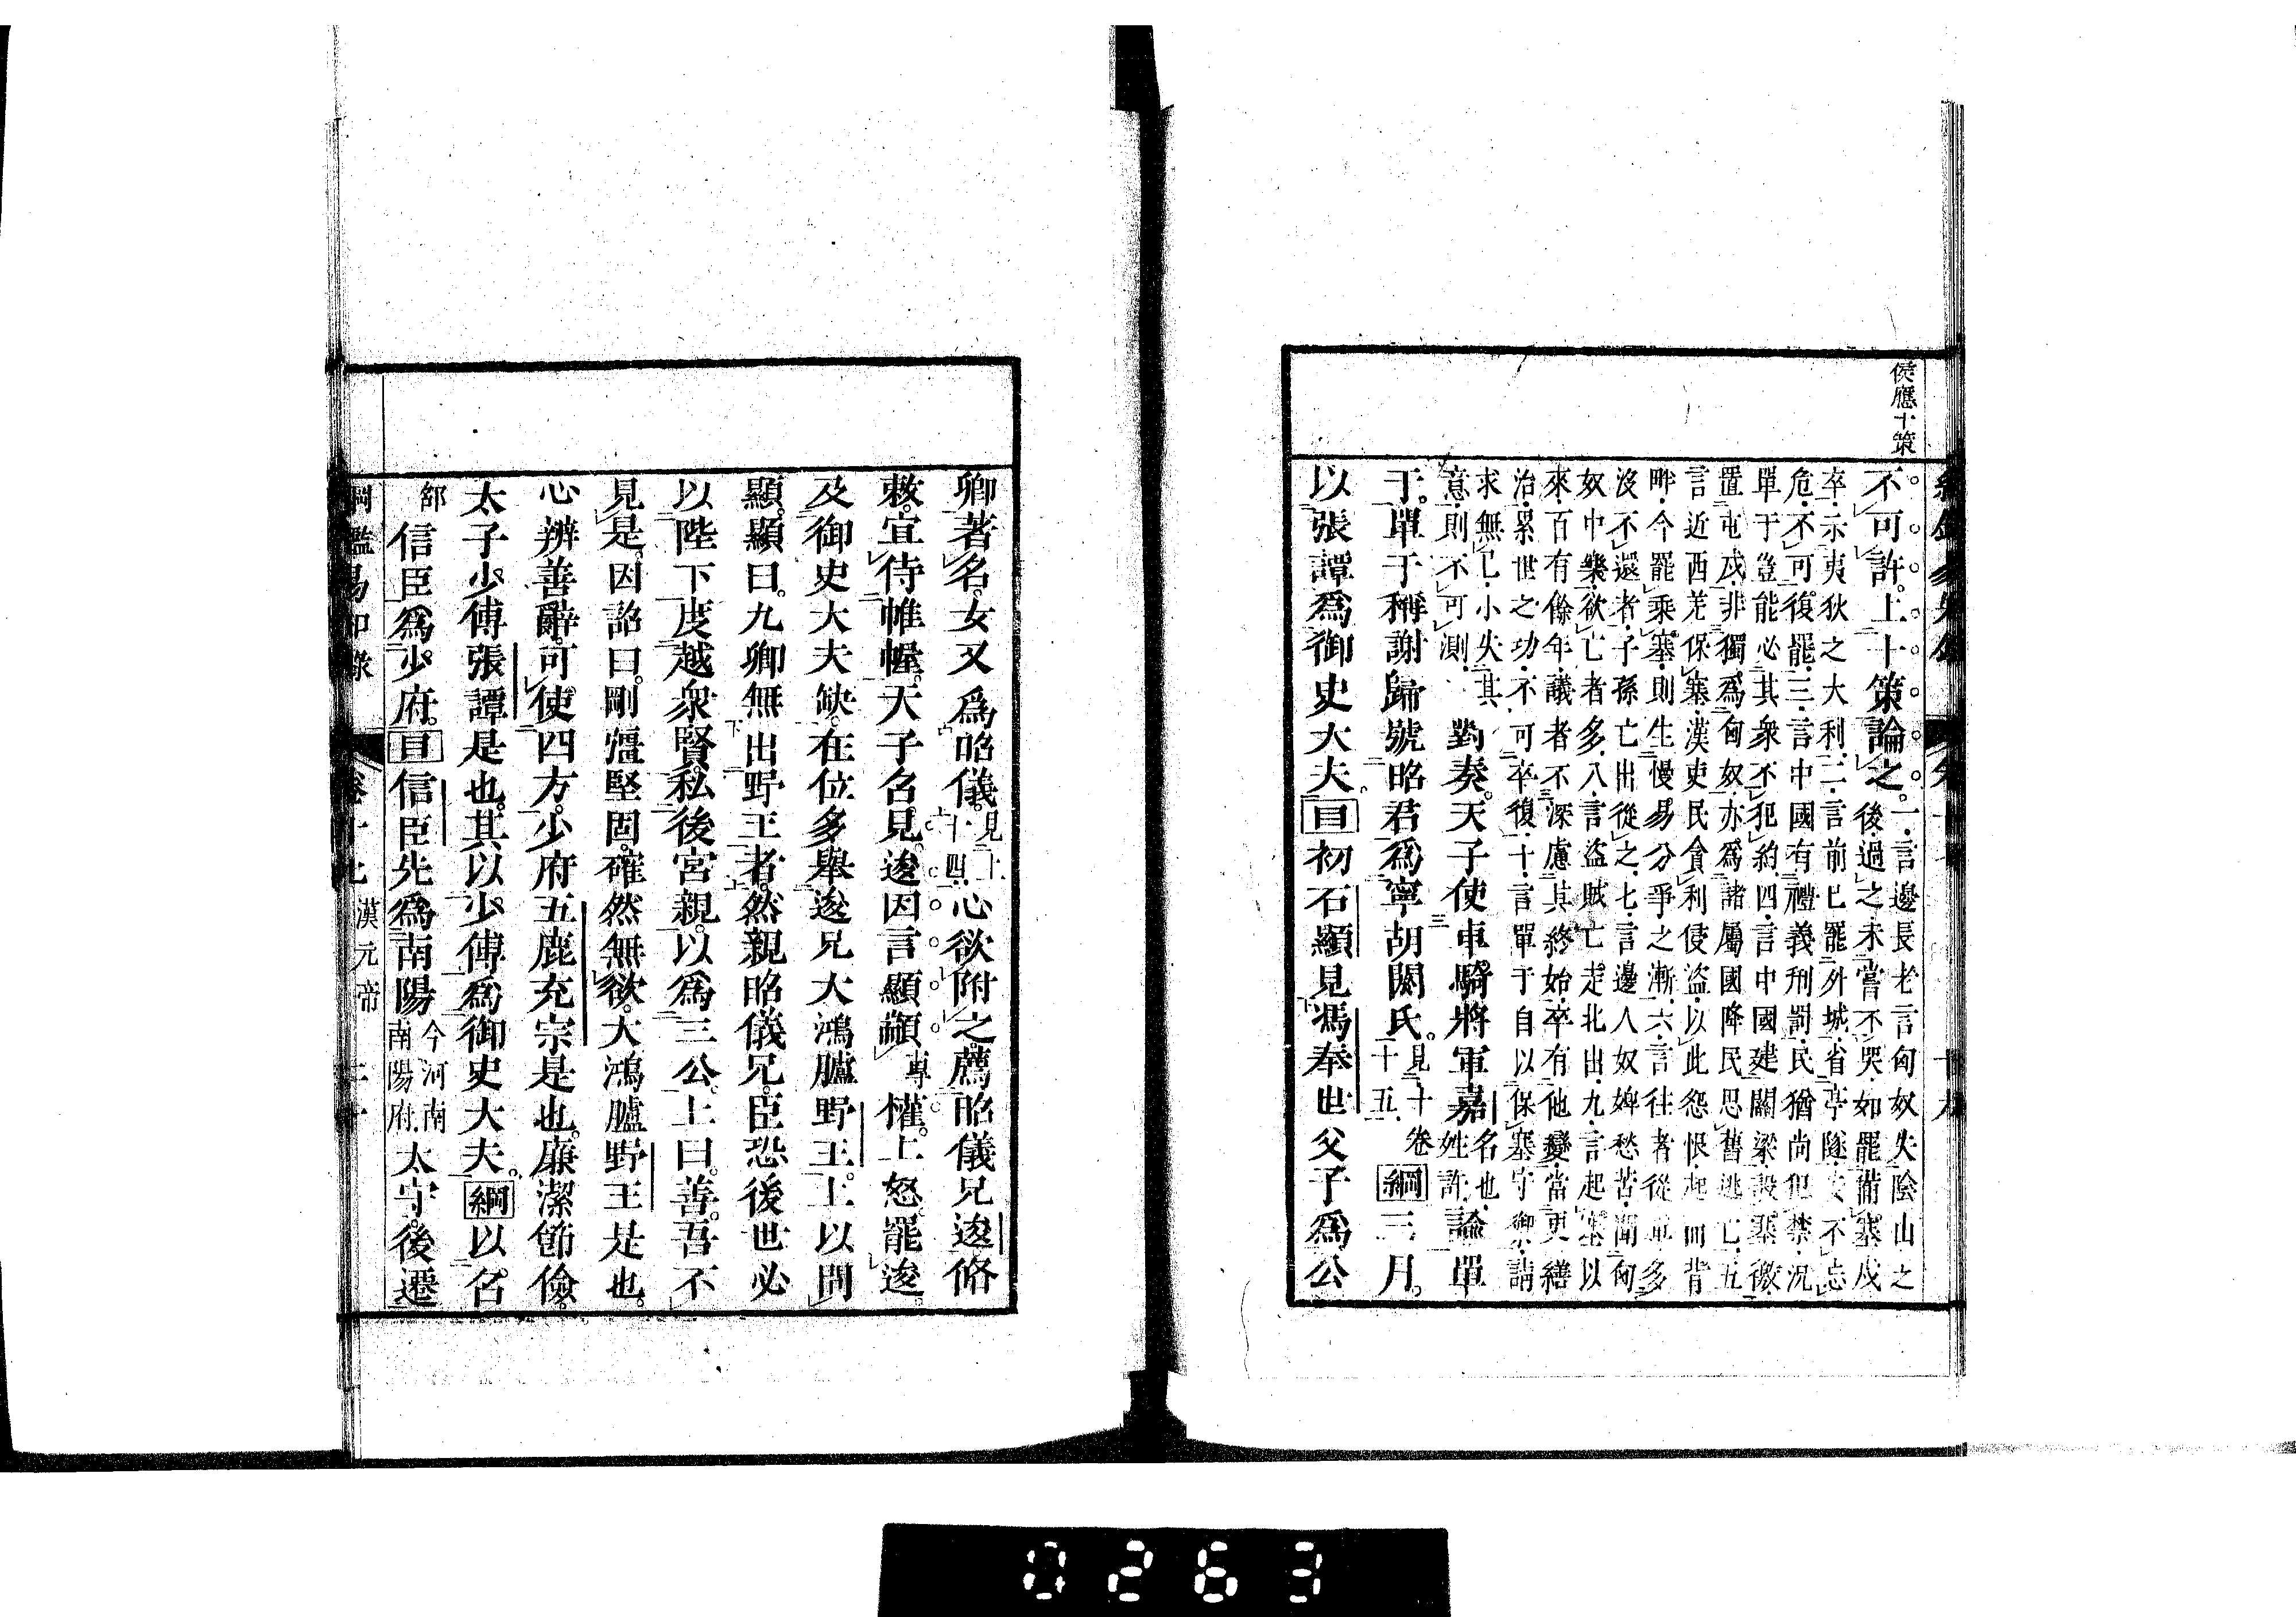 侯應十策
不可許。上十策論之。一言邊長老言匈奴失陰山之
後過之未嘗不哭如罷備塞戍
卒示夷狄之大利二言前已罷外城省亭隧不忘
危不可復罷三言中國有禮義刑罰民猶尚犯禁況
單于豈能必其衆不犯約四言中國建關梁設塞徼
置屯戍非獨爲匈奴亦爲諸屬國降民思舊逃亡五
言近西羌保塞漢吏民貪利侵盗以此怨恨起而背
畔今罷乘塞則生慢易分爭之漸六言往者從軍多
沒不還者子孫亡出從之七言邊人奴婢愁苦聞匈
奴中樂欲亡者多八言盗賊亡走北出九言起塞以
來百有餘年議者不深慮其終始卒有他變當更繕
治累世之功不可卒復十言單于自以保塞守禦請
求無已小失其
意則不可測
對奏。天子使車騎將軍嘉名也姓許論單
于。單于稱謝歸號昭君爲寧胡閼氏。見十五卷綱三月。
以張譚爲御史大夫。目初石顯見馮奉世父子爲公
卿著名。女又爲昭儀。見上十四心欲附之。薦昭儀兄逡脩
敕。宣侍帷幄。天子召見。逡因言顯顓專權。上怒罷逡。
及御史大夫缺。在位多舉逡兄大鴻臚野王。上以問
顯。顯曰。九卿無出野王者。然親昭儀兄。臣恐後世必
以陛下度越衆賢。私後宮親。以爲三公。上曰。善。吾不
見是。因詔曰。剛彊堅固。確然無欲。大鴻臚野王是也。
心辨善辭。可使四方。少府五鹿充宗是也。廉潔節儉。
太子少傅張譚是也。其以少傅爲御史大夫。綱以召
邵信臣爲少府。目信臣先爲南陽今河南南陽府太守。後遷
綱鑑易知錄
漢元帝
0263